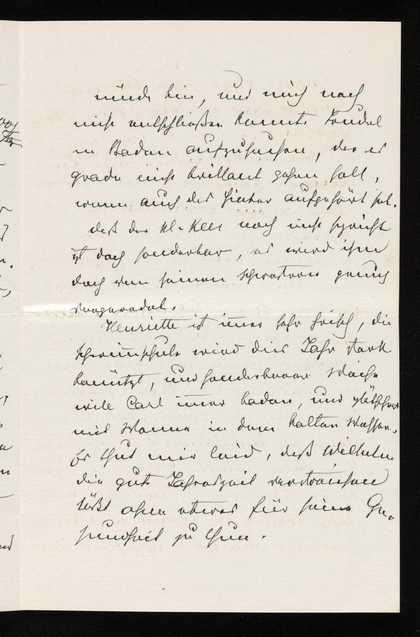 müde bin, und mich noch
nicht entschließen konnte Vondel
in Baden aufzusuchen, der es
grade nicht brillant gehen soll,
wenn auch das Fieber aufgehört hat.
Daß der kl. Kees noch nicht spricht
ist doch sonderbar, es wird ihm
doch von seinen Schwestern genug
vorgeredet.
Henriette ist immer sehr frisch, die
Schwimmschule wird dies Jahr stark
benützt, und sonderbarer Weise
will Carl immer baden, und plätschert
mit Wonne in dem kalten Wasser.
Es thut mir leid, daß Wilhelm
die gute Jahreszeit verstreichen
läßt ohne etwas für seine Ge-
sundheit zu thun.